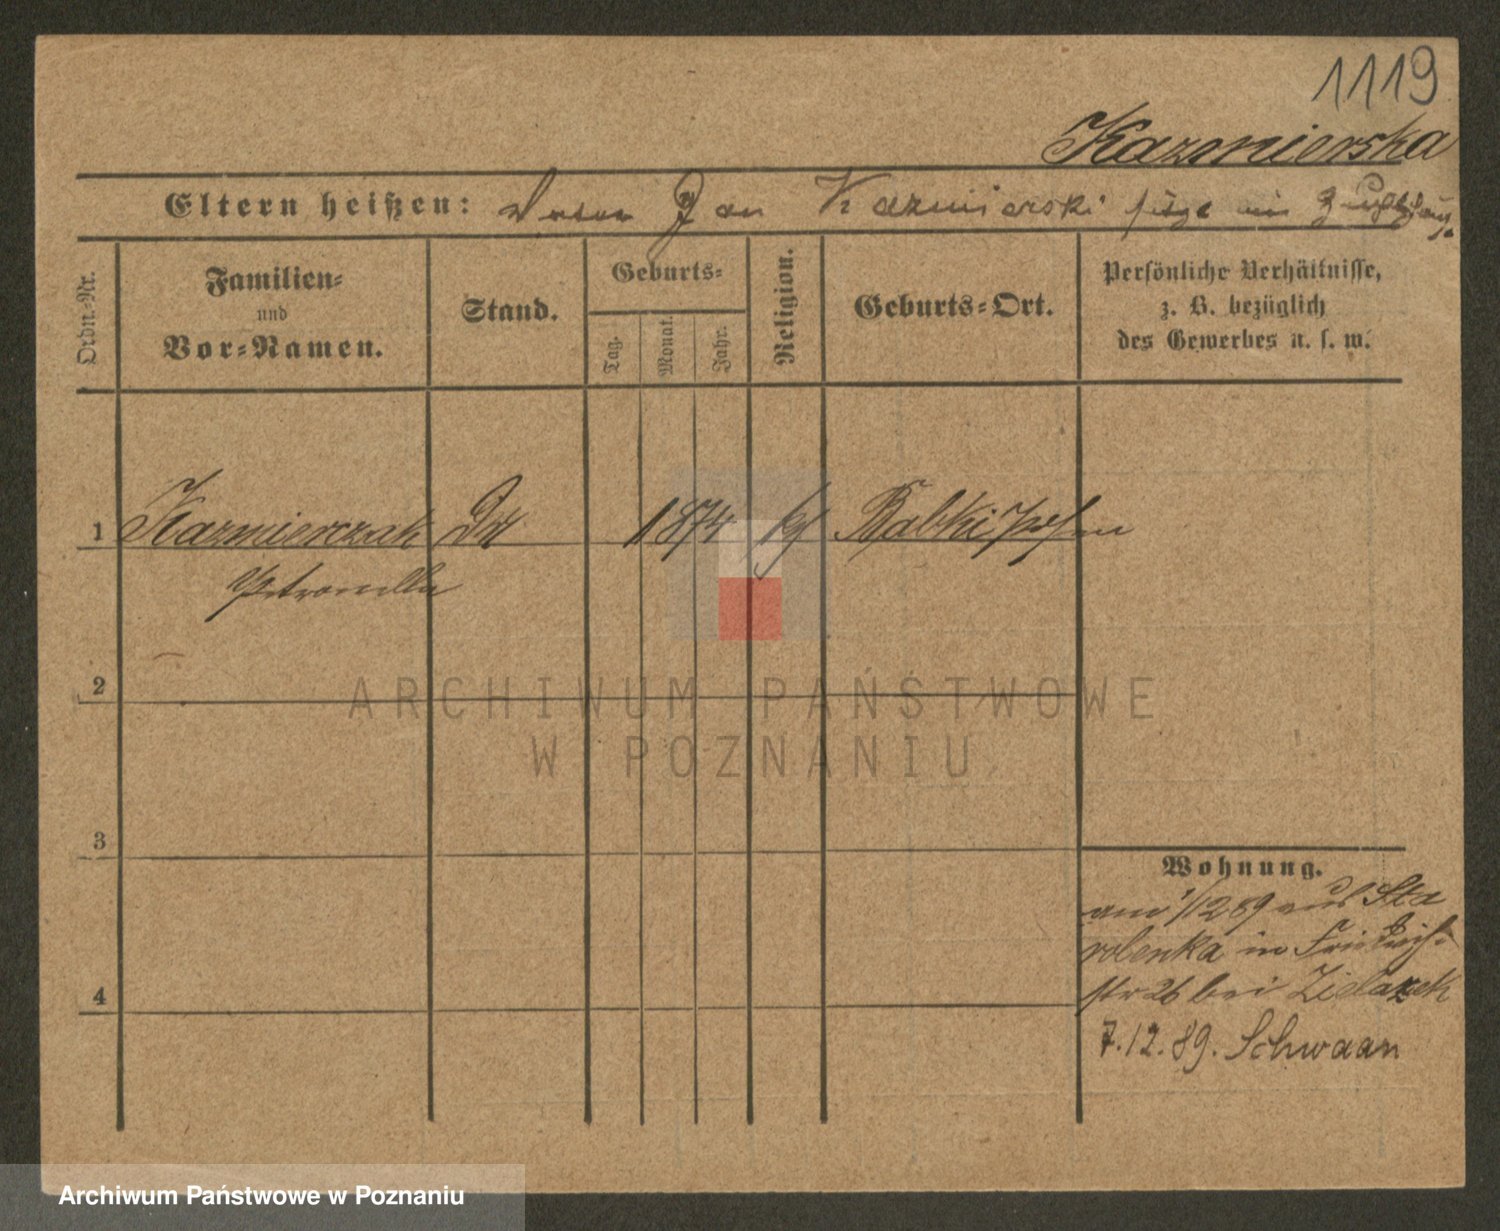 1119
Kazmierska
Eltern heißen: Vater Jan Kazmierski sitzt im Zuchthaus.
Ordn.-Nr.
Familien-
und
Vor-Namen.
Stand.
Geburts-
Tag.
Monat.
Jahr.
Religion.
Geburts-Ort.
Persönliche Verhältnisse,
z. B. bezüglich
des Gewerbes u. s. w.
1 Kazmierczak 1874 Babki Posen
Petronella
2
3
4
Wohnung.
am 1/12 89 aus Sta
rolenka in Friedrich-
str 26 bei Zielazek
7.12.89. Schwaan
ARCHIWUM PAŃSTWOWE
W POZNANIU
Archiwum Państwowe w Poznaniu